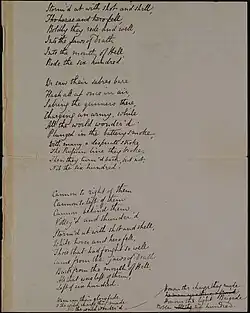 Storm'd at with shot and shell,
Tho horse and hero fell,
Boldly they rode and well,
Into the jaws of Death
Into the mouth of Hell
Rode the six hundred

sabres bare
Flash'd all at once in air,
Sabring the gunners there,
Charging an army, while
All the world wonder'd:
Plunged in the battery smoke
With many a desperate stroke
The Russian line they broke;
Then they turn'd back, but not,
Not the six hundred.

Cannon to right of them
Cannon to left of them
Cannon behind them
Volley'd and thunder'd
Storm'd at with shot and shell,
While horse and hero fell,
Those that had fought so well
from the jaws of Death
Back from the mouth of Hell,
All that was left of them
Left of six hundred.

Honour the charge they made
Honour the Light Brigade
hundred